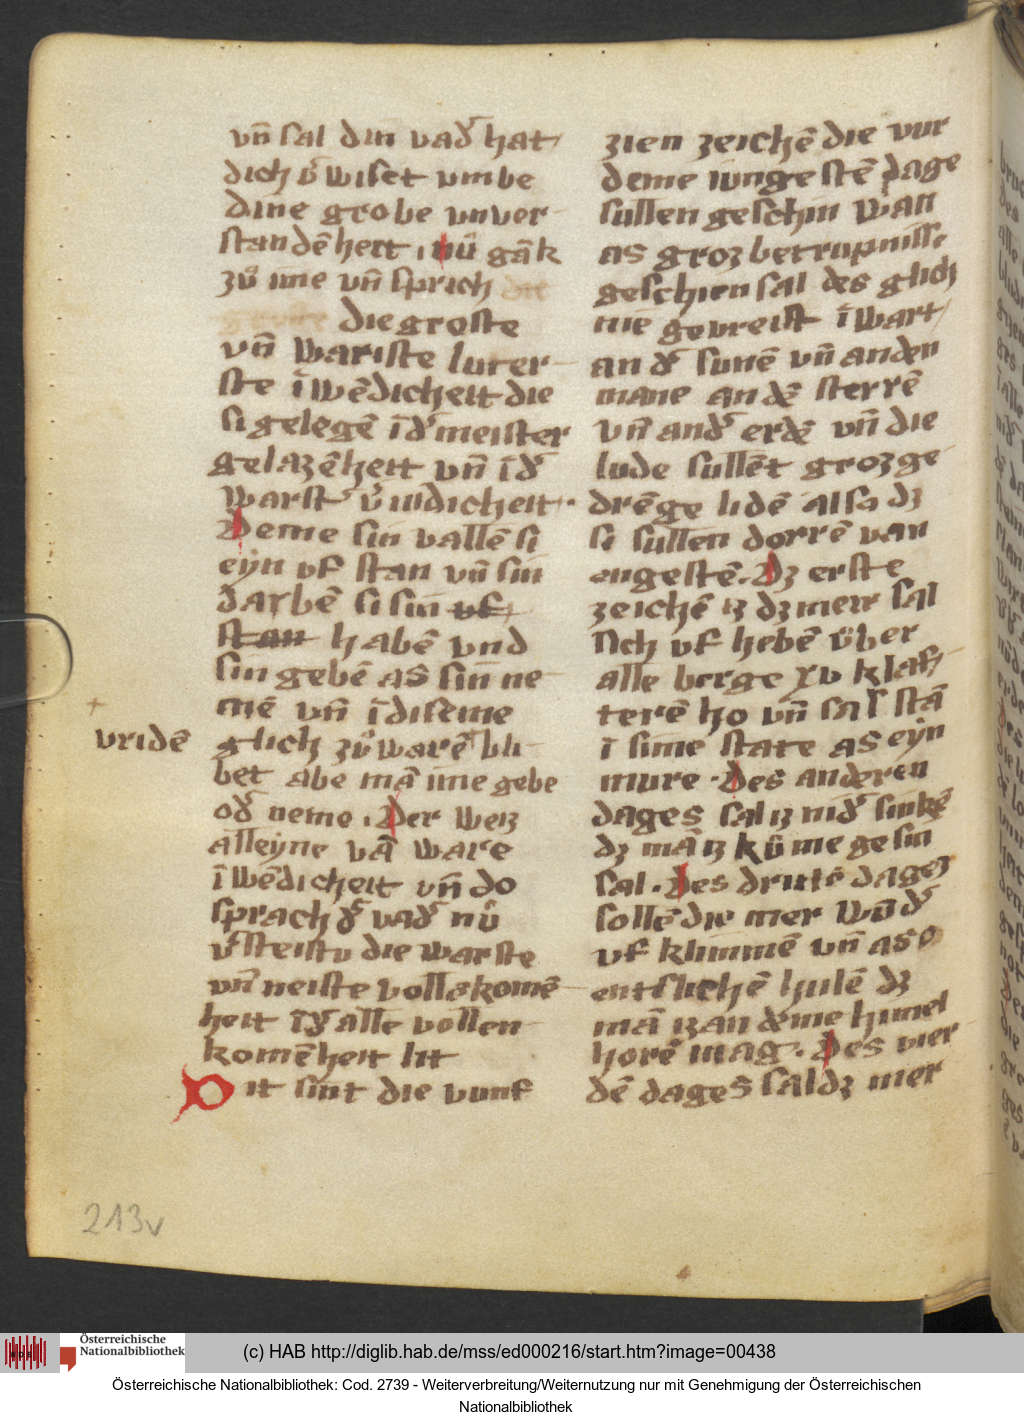 vn̄ sal din vad᷑ hat
dich v᷑wiset vmbe
dine grobe vnver
standēheit . nuͦ gāk
zuͦ ime vn̄ sprich die
die groste
vn̄ wariste luter
ste īwēdicheit die
si gelegē ī d᷑ meister
gelazēheit vn̄ ī d᷑
warst v᷑nidicheit .
Deme sin vallē si
eyn vf stan vn̄ sin
darbē si sin vf
stan habē vnd
sin gebē as sin ne
mē vn̄ ī diseme
vridē
glich zuͦ warē bli
bet abe mā ime gebe
od᷑ neme . Der weiz
alleyne vā ware
īwēdicheit vn̄ do
sprach d᷑ vad᷑ nuͦ
v᷑steistu die warste
vn̄ neiste vollekomē
heit ī d᷑ alle vollen
komēheit lit
Dit sint die vunf
zien zeichē die vur
deme iungestē dage
sullen geschin wan
as groz betrupnisse
geschien sal des glich
nie gevreist ī wart
an d᷑ sunē vn̄ an den
mane an dē sterrē
vn̄ an d᷑ erdē vn̄ die
lude sullēt groz ge
drēge lidē also dz
si sullen dorrē van
engestē . Dz erste
zeichē iz dz merr sal
sich vf hebē uͦber
alle berge xv klaf
terē ho vn̄ sal stā
ī sime state as eyn
mure . Des anderen
dages sal iz nid᷑ sinkē
dz mā iz kuͦme gesin
sal . Des drittē dages
sollē die mer wūd᷑
vf klimmē vn̄ aso
entslichē hulē dz
mā iz an deme himel
horē mag . Des vier
dē dages sal dz mer
213v
(c) HAB http://diglib.hab.de/mss/ed000216/start.htm?image=00438
Österreichische
Nationalbibliothek
Österreichische Nationalbibliothek: Cod. 2739 - Weiterverbreitung/Weiternutzung nur mit Genehmigung der Österreichischen
Nationalbibliothek